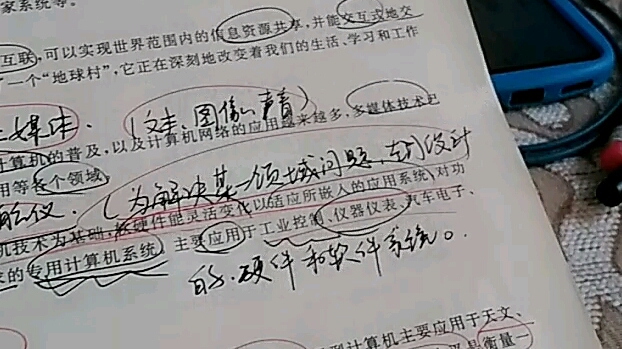 家系统等。
互联,可以实现世界范围内的信息资源共享,并能交互式地交
了一个“地球村”,它正在深刻地改变着我们的生活、学习和工作
媒体. (文本、图像、声音)
计算机的普及,以及计算机网络的应用越来越多,多媒体技术已
用等各个领域
(为解决某一领域问题,专门设计
机技术为基础,软硬件能灵活变化以适应所嵌入的应用系统,对功
的专用计算机系统。主要应用于工业控制、仪器仪表、汽车电子、
的、硬件和软件系统。
计算机主要应用于天文、
衡量一